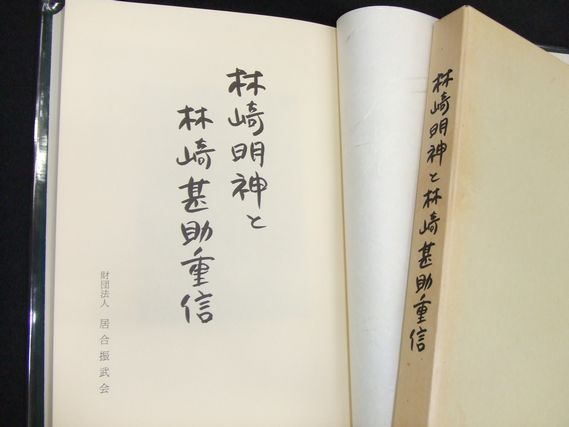 林崎明神と
林崎甚助重信
財団法人 居合振武会
林崎明神と林崎甚助重信